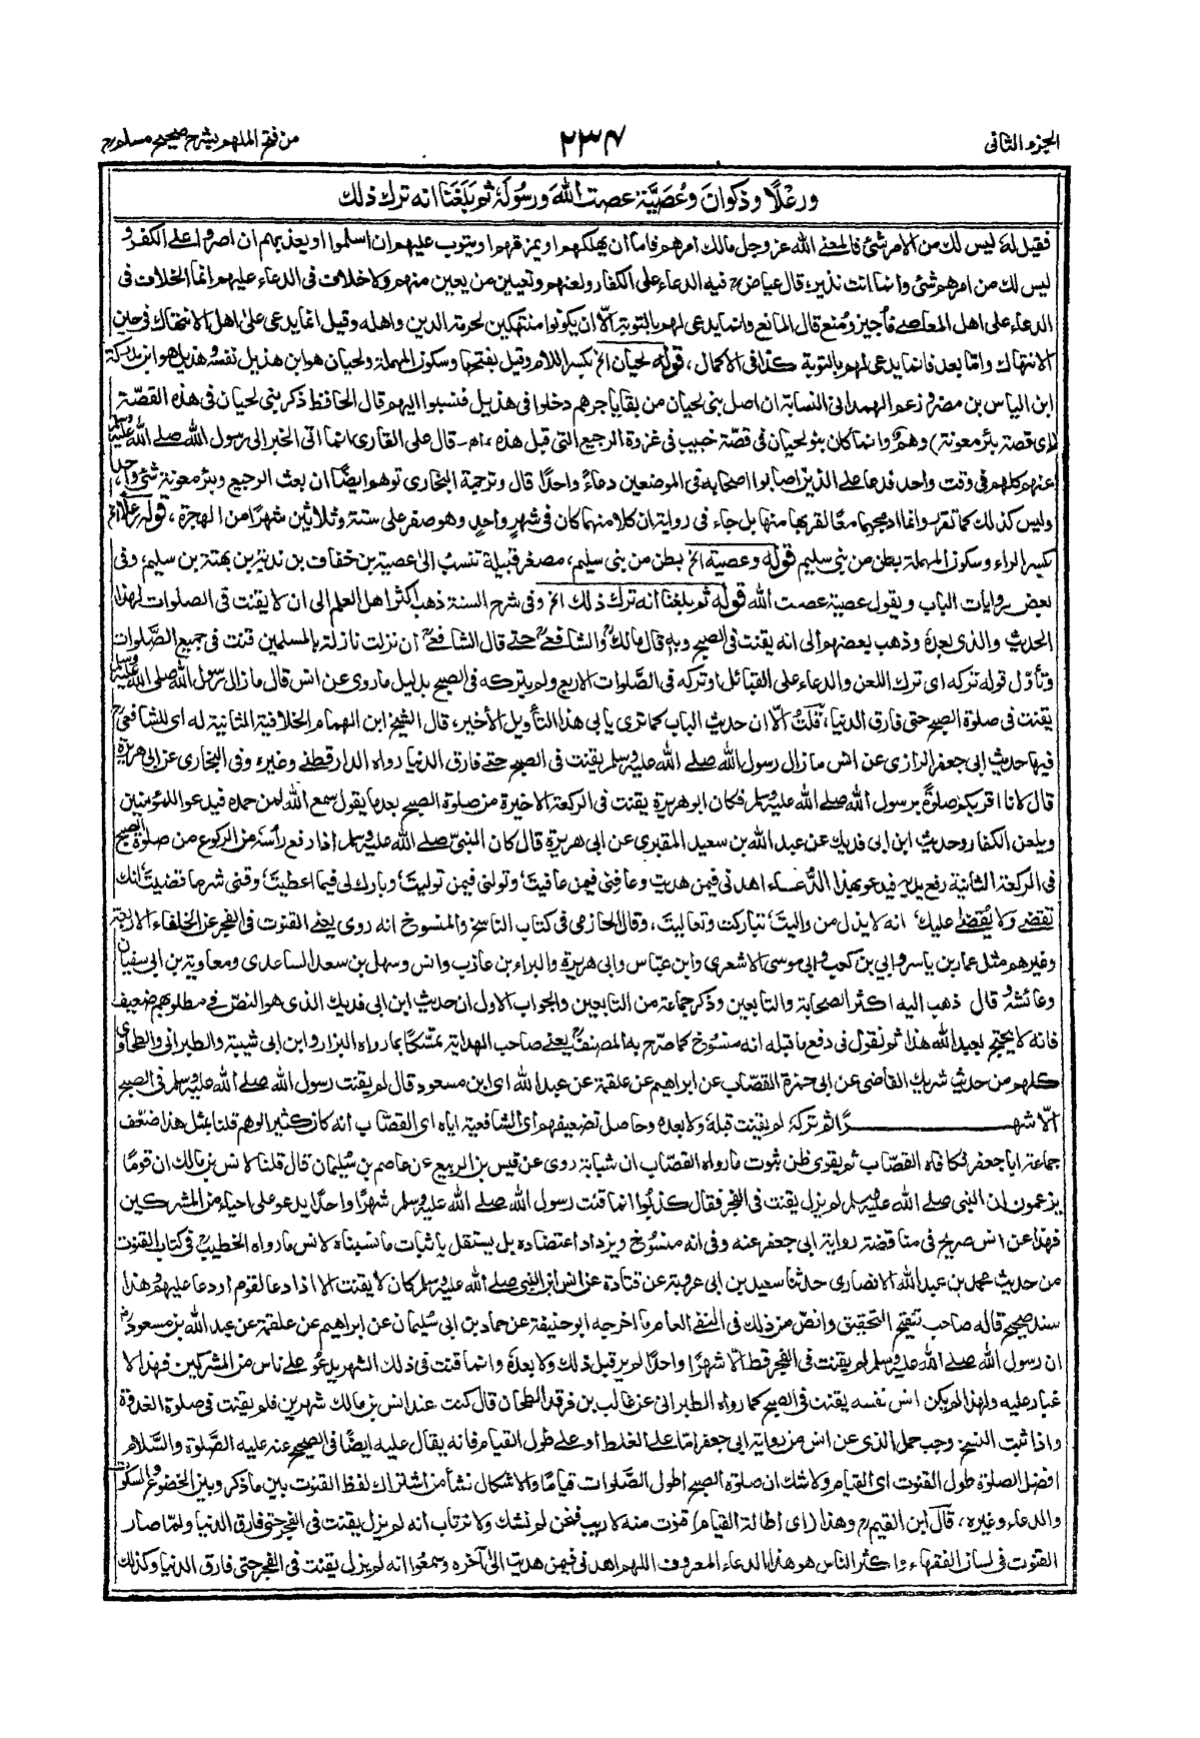 الجزء الثانى
٢٣٤
من فتح الملهم بشرح صحيح مسلم
ورعلا وذكوان وعصية عصت الله ورسوله ثم بلغنا انه ترك ذلك
فقيل له ليس لك من الامر شئ فالمعنى الله عز وجل مالك امرهم فاما ان يهلكهم او يهزمهم او يتوب عليهم ان اسلموا او يعذبهم ان اصروا على الكفر و
ليس لك من امرهم شئ وانما انت نذير، قال عياض فيه الدعاء على الكفار ولعنهم وتعيين من يعين منهم ولا خلاف فى الدعاء عليهم انما الخلاف فى
الدعاء على اهل المعاصى فاجيز ومنع قال المانع وانما يدعى لهم بالتوبة الا ان يكونوا منتهكين لحرمة الدين واهله وقيل انما يدعى على اهل الانتهاك فى حين
الانتهاك واما بعد فانما يدعى لهم بالتوبة كذا فى الاكمال، قوله لحيان الخ بكسر اللام وقيل بفتحها وسكون المهملة ولحيان هو ابن هذيل نفسه هذيل هو ابن مدركة
ابن الياس بن مضر وزعم الهمدانى النسابة ان اصل بنى لحيان من بقايا جرهم دخلوا فى هذيل فنسبوا اليهم قال الحافظ ذكر بنى لحيان فى هذه القصة
(اى قصة بئر معونة) وهم وانما كان بنو لحيان فى قصة خبيب فى غزوة الرجيع التى قبل هذه، ام - قال على القارى انما اتى الخبر الى رسول الله صلى الله عليه وسلم
عنهم كلهم فى وقت واحد فدعا على الذين اصابوا اصحابه فى الموضعين دعاء واحدا قال وترجمة البخارى توهم ايضا ان بعث الرجيع وبئر معونة شئ واحد،
وليس كذلك كما تقرر وانما ادمجها معا لقربها منها بل جاء فى رواية ان كلا منهما كان فى شهر واحد وهو صفر على ستة وثلاثين شهرا من الهجرة، قوله رعلا الخ
بكسر الراء وسكون المهملة بطن من بنى سليم قوله وعصية الخ بطن من بنى سليم، مصغر قبيلة تنسب الى عصية بن خفاف بن ندبة بن بهثة بن سليم، وفى
بعض روايات الباب ويقول عصية عصت الله قوله ثم بلغنا انه ترك ذلك الخ وفى شرح السنة ذهب اكثر اهل العلم الى ان لا يقنت فى الصلوات لهذا
الحديث والذى بعده وذهب بعضهم الى انه يقنت فى الصبح وبه قال مالك والشافعى حتى قال الشافعى ان نزلت نازلة بالمسلمين قنت فى جميع الصلوات
وتأول قوله تركه اى ترك اللعن والدعاء على القبائل او تركه فى الصلوات الاربع ولم يتركه فى الصبح بدليل ما روى عن انس قال ما زال رسول الله صلى الله عليه وسلم
يقنت فى صلوة الصبح حتى فارق الدنيا، قلت الا ان حديث الباب كما ترى يابى هذا التأويل الأخير، قال الشيخ ابن الهمام الخلافية الثانية له اى للشافعى
فيها حديث ابى جعفر الرازى عن انس ما زال رسول الله صلى الله عليه وسلم يقنت فى الصبح حتى فارق الدنيا رواه الدارقطنى وغيره وفى البخارى عن ابى هريرة
قال لانا اقربكم صلوة برسول الله صلى الله عليه وسلم فكان ابو هريرة يقنت فى الركعة الاخيرة من صلوة الصبح بعد ما يقول سمع الله لمن حمده فيدعو للمؤمنين
ويلعن الكفار وحديث ابن ابى فديك عن عبد الله بن سعيد المقبرى عن ابى هريرة قال كان النبى صلى الله عليه وسلم اذا رفع رأسه من الركوع من صلوة الصبح
فى الركعة الثانية رفع يديه فيدعو بهذا الدعاء اهدنى فيمن هديت وعافنى فيمن عافيت وتولنى فيمن توليت وبارك لى فيما اعطيت وقنى شر ما قضيت انك
تقضى ولا يقضى عليك انه لا يذل من واليت تباركت وتعاليت، وقال الحازمى فى كتاب الناسخ والمنسوخ انه روى يعنى القنوت فى الفجر عن الخلفاء الاربعة
وغيرهم مثل عمار بن ياسر وابى بن كعب وابى موسى الاشعرى وابن عباس وابى هريرة والبراء بن عازب وانس وسهل بن سعد الساعدى ومعاوية بن ابى سفيان
وعائشة وقال ذهب اليه اكثر الصحابة والتابعين وذكر جماعة من التابعين والجواب الاول ان حديث ابن ابى فديك الذى هو النص فى مطلوبهم ضعيف
فانه لا يحتج بعبد الله هذا ثم نقول فى دفع ما قبله انه منسوخ كما صرح به المصنف يعنى صاحب الهداية تمسكا بما رواه البزار وابن ابى شيبة والطبرانى والطحاوى
كلهم من حديث شريك القاضى عن ابى حمزة القصاب عن ابراهيم عن علقمة عن عبد الله اى ابن مسعود قال لم يقنت رسول الله صلى الله عليه وسلم فى الصبح
الا شهرا ثم تركه لم يقنت قبله ولا بعده وحاصل تضعيفهم اى الشافعية اياه اى القصاب انه كان كثير الوهم قلنا بمثل هذا ضعف
جماعة ابا جعفر فكافاه القصاب ثم يقوى ظن ثبوت ما رواه القصاب ان شبابة روى عن قيس بن الربيع عن عاصم بن سليمان قال قلنا لانس بن مالك ان قوما
يزعمون ان النبى صلى الله عليه وسلم لم يزل يقنت فى الفجر فقال كذبوا انما قنت رسول الله صلى الله عليه وسلم شهرا واحدا يدعو على احياء من المشركين
فهذا عن انس صريح فى مناقضة رواية ابى جعفر عنه وفى انه منسوخ ويزداد اعتضاده بل يستقل باثبات ما نسبناه لانس ما رواه الخطيب فى كتاب القنوت
من حديث محمد بن عبد الله الانصارى حدثنا سعيد بن ابى عروبة عن قتادة عن انس ان النبى صلى الله عليه وسلم كان لا يقنت الا اذا دعا لقوم او دعا عليهم وهذا
سند صحيح قاله صاحب تنقيح التحقيق وانص من ذلك فى النفى العام ما اخرجه ابو حنيفة عن حماد بن ابى سليمان عن ابراهيم عن علقمة عن عبد الله بن مسعود
ان رسول الله صلى الله عليه وسلم لم يقنت فى الفجر قط الا شهرا واحدا لم ير قبل ذلك ولا بعده وانما قنت فى ذلك الشهر يدعو على ناس من المشركين فهذا لا
غبار عليه ولهذا لم يكن انس نفسه يقنت فى الصبح كما رواه الطبرانى عن غالب بن فرقد الطحان قال كنت عند انس بن مالك شهرين فلم يقنت فى صلوة الغدوة
واذا ثبت النسخ وجب حمل الذى عن انس من رواية ابى جعفر اما على الغلط او على طول القيام فانه يقال عليه ايضا فى الصحيح عنه عليه الصلوة والسلام
افضل الصلوة طول القنوت اى القيام ولا شك ان صلوة الصبح اطول الصلوات قياما والاشكال نشأ من اشتراك لفظ القنوت بين ما ذكر وبين الخضوع والسكوت
والدعاء وغيره، قال ابن القيم وهذا (اى اطالة القيام) قنوت منه لا ريب فنحن لم نشك ولا نرتاب انه لم يزل يقنت فى الفجر حتى فارق الدنيا ولما صار
القنوت فى لسان الفقهاء واكثر الناس هو هذا الدعاء المعروف اللهم اهدنى فيمن هديت الى آخره وسمعوا انه لم يزل يقنت فى الفجر حتى فارق الدنيا وكذلك